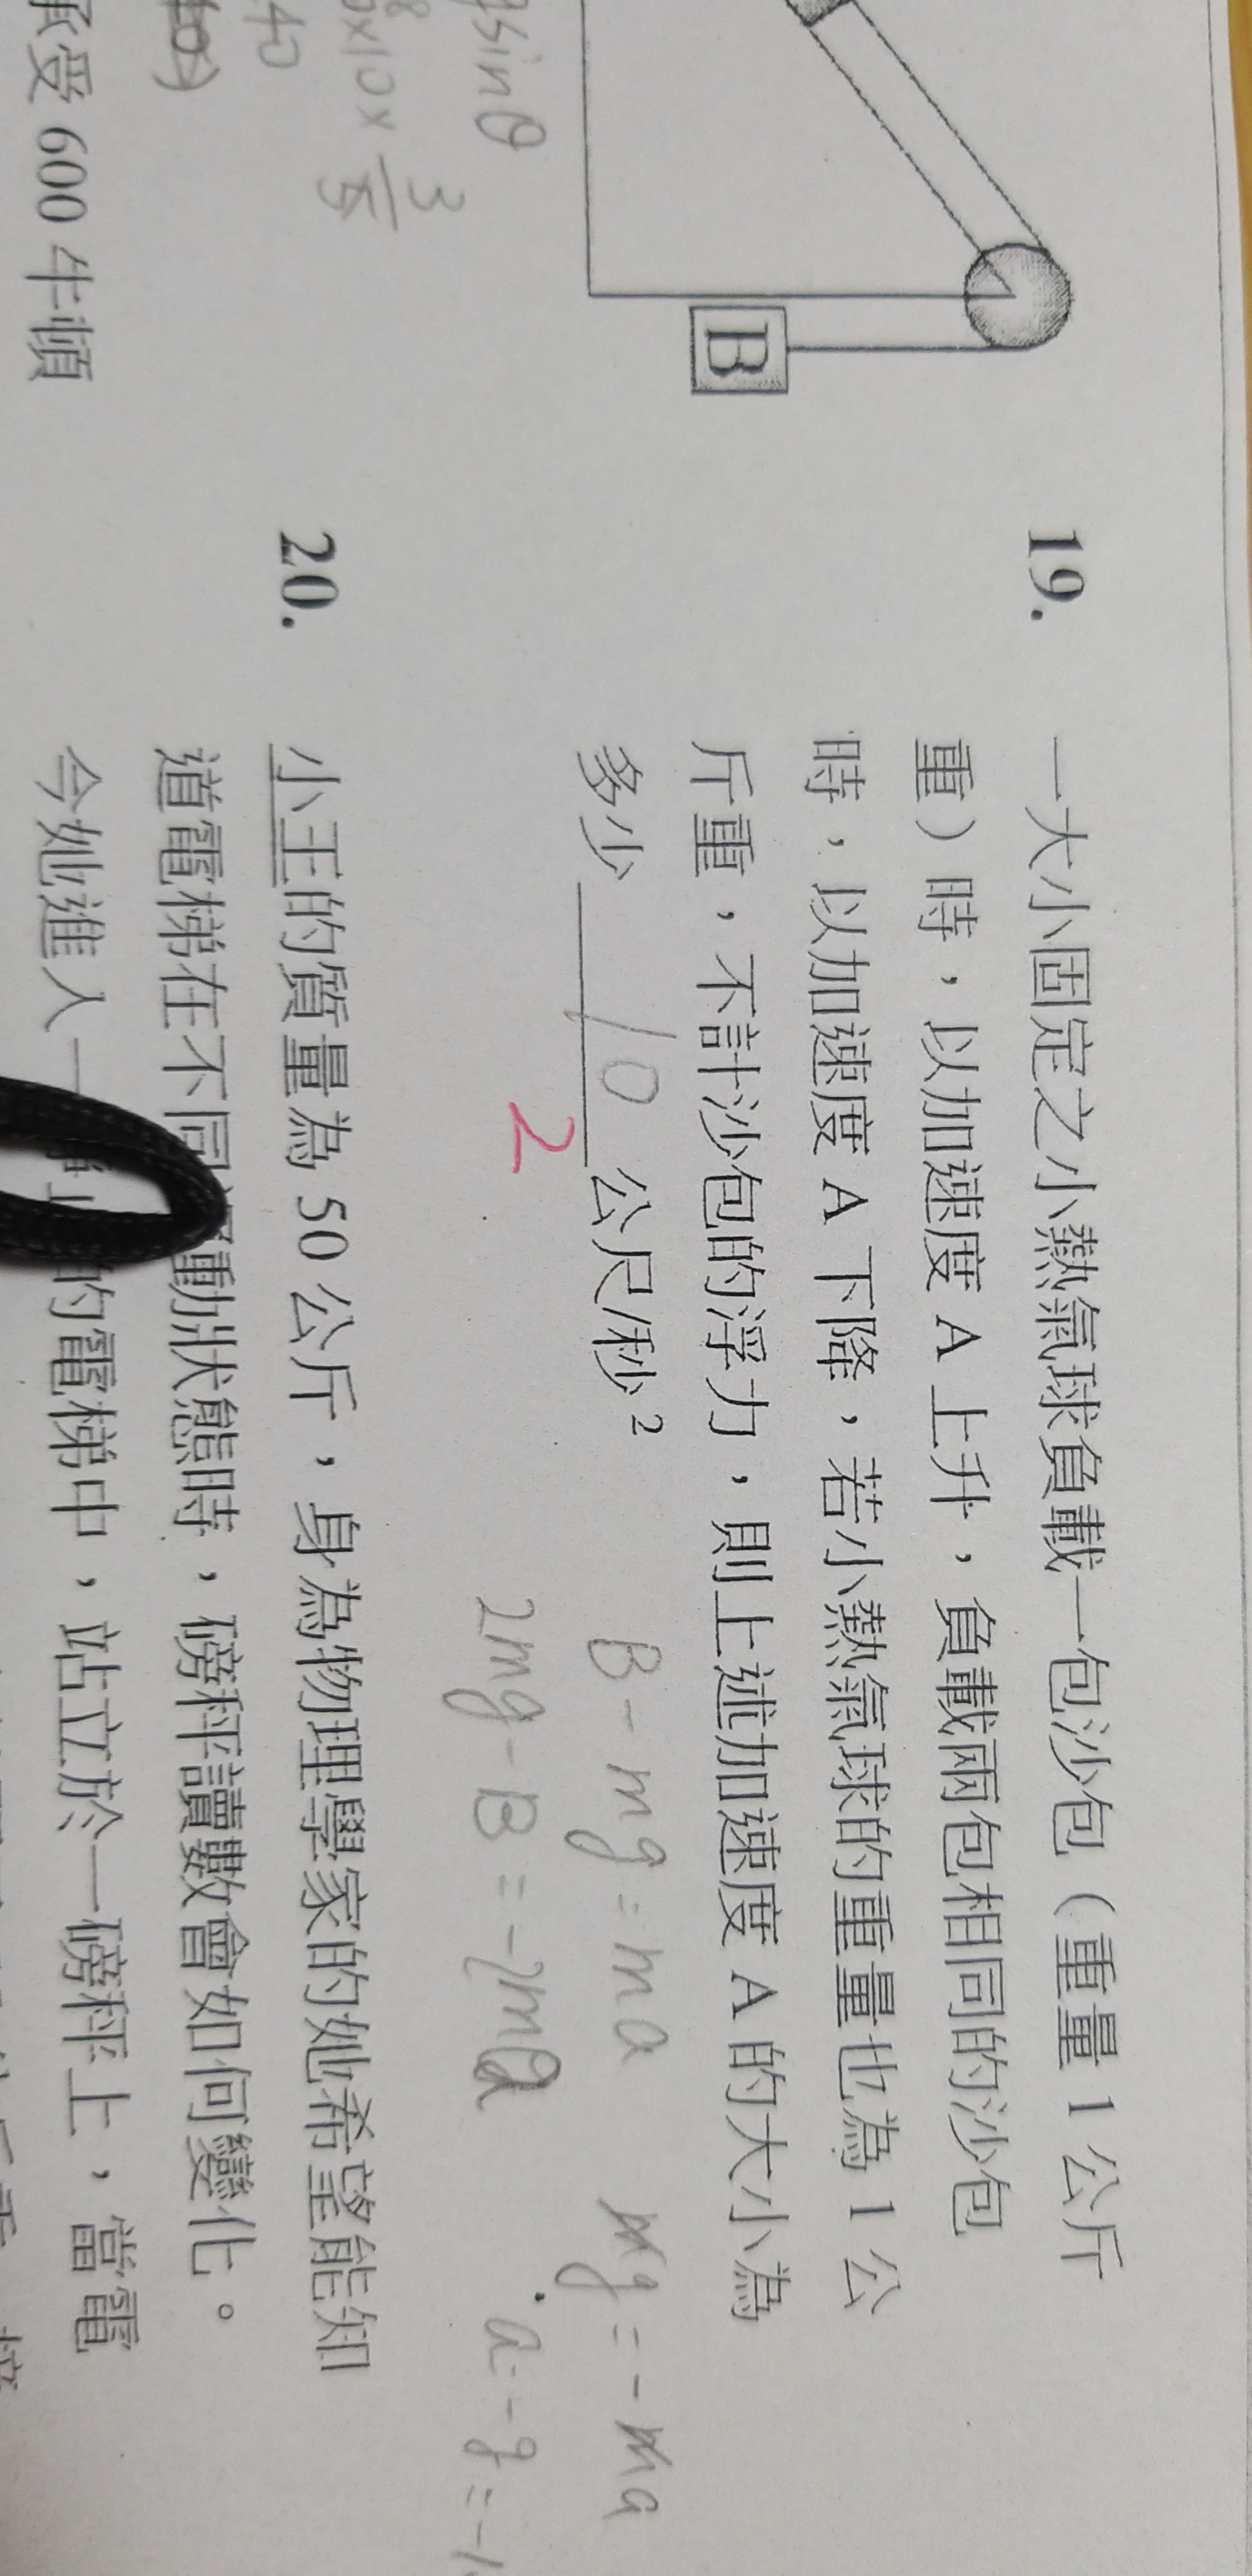 B
19. 一大小固定之小熱氣球負載一包沙包（重量 1 公斤
重）時，以加速度 A 上升，負載兩包相同的沙包
時，以加速度 A 下降，若小熱氣球的重量也為 1 公
斤重，不計沙包的浮力，則上述加速度 A 的大小為
多少 10 公尺/秒²
2
B-mg=ma
2mg-B=-2ma
mg=-ma
a=-g=-1
20. 小王的質量為 50 公斤，身為物理學家的她希望能知
道電梯在不同 動狀態時，磅秤讀數會如何變化。
今她進入一 的電梯中，站立於一磅秤上，當電
sinθ
×10×3/5
承受 600 牛頓